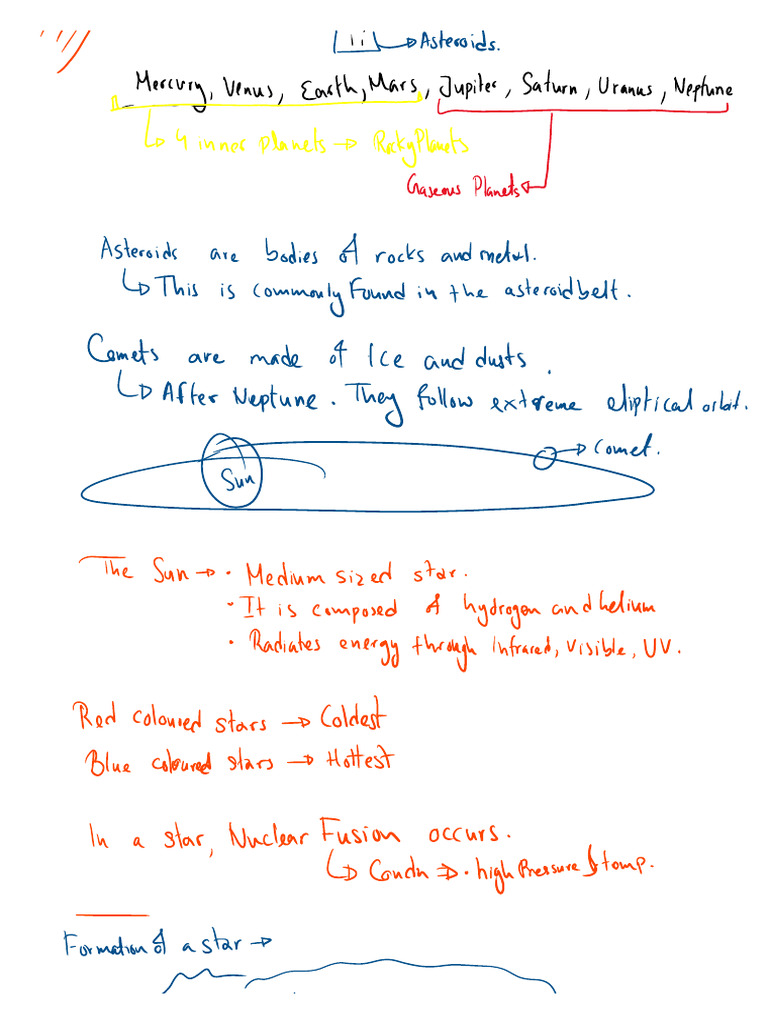 Asteroids.
Mercury, Venus, Earth, Mars, Jupiter, Saturn, Uranus, Neptune
4 inner planets → Rocky Planets
Gaseous Planets
Asteroids are bodies of rocks and metal.
This is commonly Found in the asteroid belt.
Comets are made of Ice and dusts.
After Neptune. They follow extreme eliptical orbit.
Comet.
Sun
The Sun → • Medium sized star.
• It is composed of hydrogen and helium
• Radiates energy through Infrared, Visible, UV.
Red coloured stars → Coldest
Blue coloured stars → Hottest
In a star, Nuclear Fusion occurs.
Condn ⇒ • high Pressure & temp.
Formation of a star →